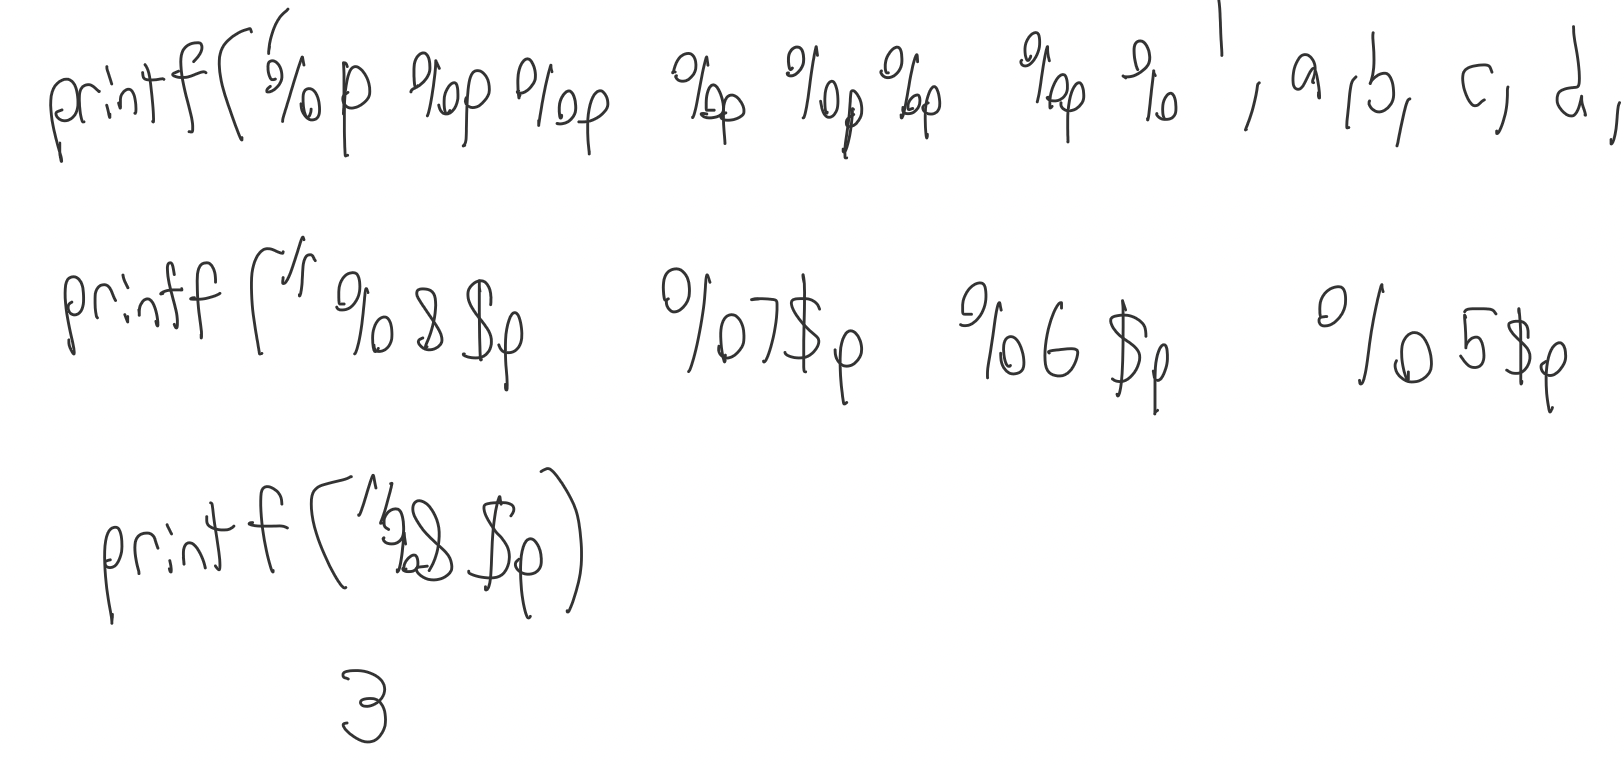 printf('%p %p %p %p %p %p %p %', a, b, c, d,
printf("%8$p %7$p %6$p %5$p
printf("%8$p)
3